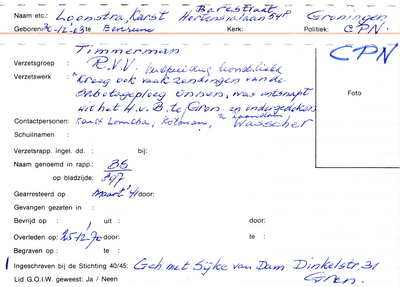 Barestraat
Naam etc.: Loonstra, Karst Hortensialaan 54a Groningen
Geboren: 30-12-'03 te Eenrum Kerk: Politiek: CPN.
Timmerman
CPN
Verzetsgroep : R.V.V.
Verzetswerk : Kreeg ook vaak zendingen van de
sabotageploeg Onnen, was ontsnapt
uit het H.v.B. te Gron. en ondergedoken
te Zaandam
Contactpersonen: Wasscher
Schuilnaam :
Foto
Verzetsrapp. ingel. dd. : bij:
Naam genoemd in rapp.: BS
op bladzijde: 397
Gearresteerd op : maart '41 door:
Gevangen gezeten in :
Bevrijd op : uit : door:
Overleden op : 25-12-'70 door: te :
Begraven op : te :
Ingeschreven bij de Stichting 40/45: Geh. met Sijke van Dam Dinkelstr. 31
Gron.
Lid G.O.I.W. geweest: Ja / Neen